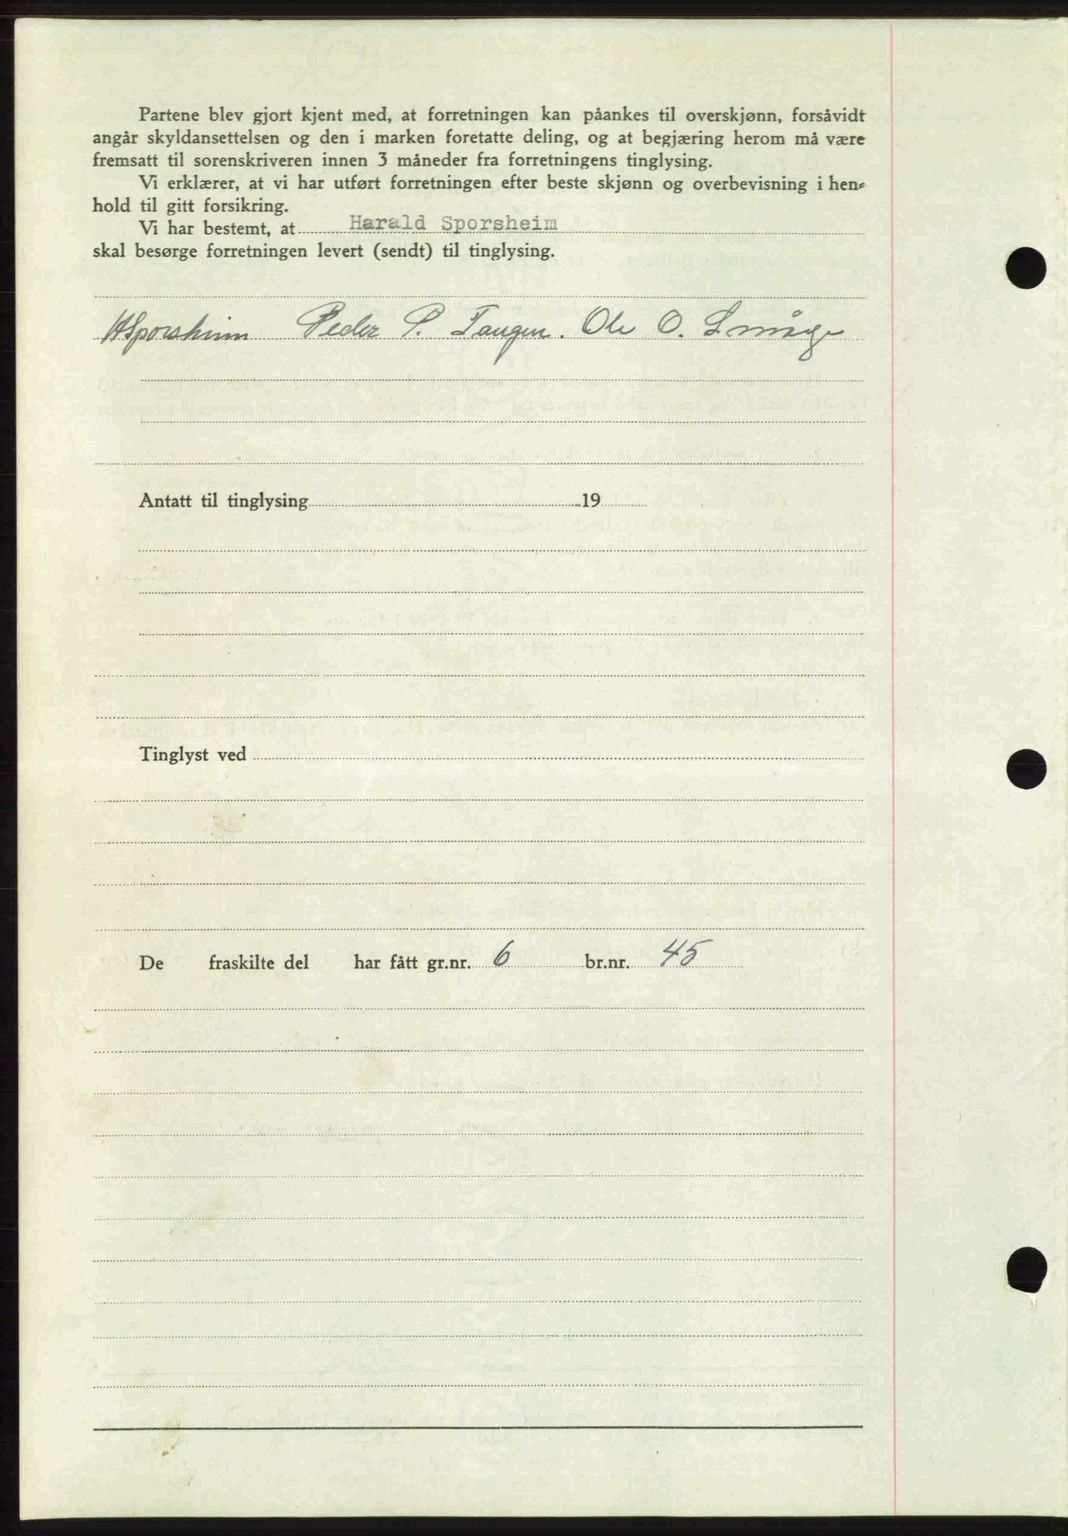 Partene blev gjort kjent med, at forretningen kan påankes til overskjønn, forsåvidt
angår skyldansettelsen og den i marken foretatte deling, og at begjæring herom må være
fremsatt til sorenskriveren innen 3 måneder fra forretningens tinglysing.
Vi erklærer, at vi har utført forretningen efter beste skjønn og overbevisning i hen-
hold til gitt forsikring.
Vi har bestemt, at Harald Sporsheim
skal besørge forretningen levert (sendt) til tinglysing.
HSporsheim Peder P. Tangen. Ole O.
Antatt til tinglysing 19
Tinglyst ved
De fraskilte del har fått gr.nr. 6 br.nr. 45